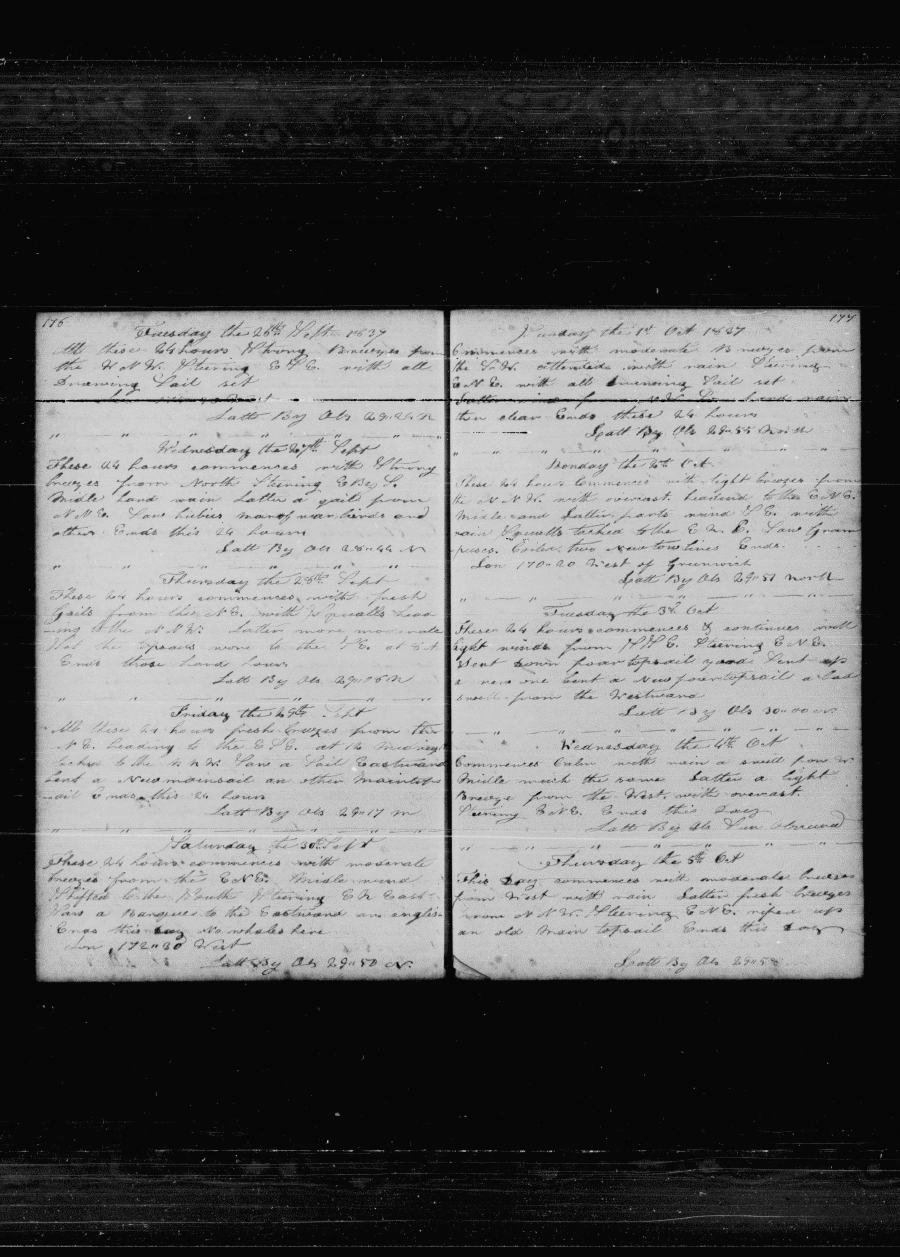 176
Tuesday the 26th Sept 1837
All these 24 hours Strong Breezes from
the W N W. Steering E S E. with all
Drawing Sail set
Latt By Obs 29"24 N
Wednesday the 27th Sept
These 24 hours commences with Strong
breezes from North Steering E By S.
Midle hand rain Latter a gail from
N N E. Saw hubies man of war birds and
other. Ends this 24 hours
Latt By Obs 28"44 N
Thursday the 28th Sept
These 24 hours commences with fresh
Gails from the N E. with Squalls Head
ing to the N N W. Latter more moderate
to the S E. at
Ends those hand hours
Latt By Obs 29"06 N
Friday the 29th Sept
All these 24 hours fresh breezes from the
N E. Heading to the E S E. at 12 Midnight
tacked to the N N W. Saw a Sail Eastward
bent a New mainsail an other Maintop
sail Ends this 24 hours
Latt By Obs 29"17 N
Saturday the 30th Sept
These 24 hours commences with moderate
breezes from the E N E. Midle wind
Shifted to the South Steering E N East
Saw a Barque to the Eastward an english
Ends this day No whales here
Lon 172"30 West
Latt By Obs 29"50 N.
177
Sunday the 1st Oct 1837
Commences with moderate Breezes from
the S. W. attended with rain Steering
E N E. with all Drawing Sail set
Latter hand rain
then clear Ends these 24 hours
Latt By Obs 29"55 North
Monday the 2nd Oct
These 24 hours Commences with light breezes from
the N N W. with overcast. headend to the E N E.
Midle and Latter parts wind S E. with
rain Squalls tacked to the E N E. Saw Gram
puses. Coiled two New tow lines Ends.
Lon 170"20 West of Greenwich
Latt By Obs 29"51 North
Tuesday the 3rd Oct
These 24 hours commences & continues with
light winds from S S E. Steering E N E.
Sent down foar topsail yard Sent up
a new one bent a New foar topsail a bad
swell from the Westward
Latt By Obs 30"00 N.
Wednesday the 4th Oct
Commences Calm with rain a swell from W
Midle much the same Latter a light
Breeze from the West. with overcast.
Steering E N E. Ends this Day
Latt By Obs Sun Obscured
Thursday the 5th Oct
This Day commences with moderate breezes
from West with rain Latter fresh breezes
from N N W. Steering E N E. riped up
an old Main topsail Ends this Day
Latt By Obs 29"58